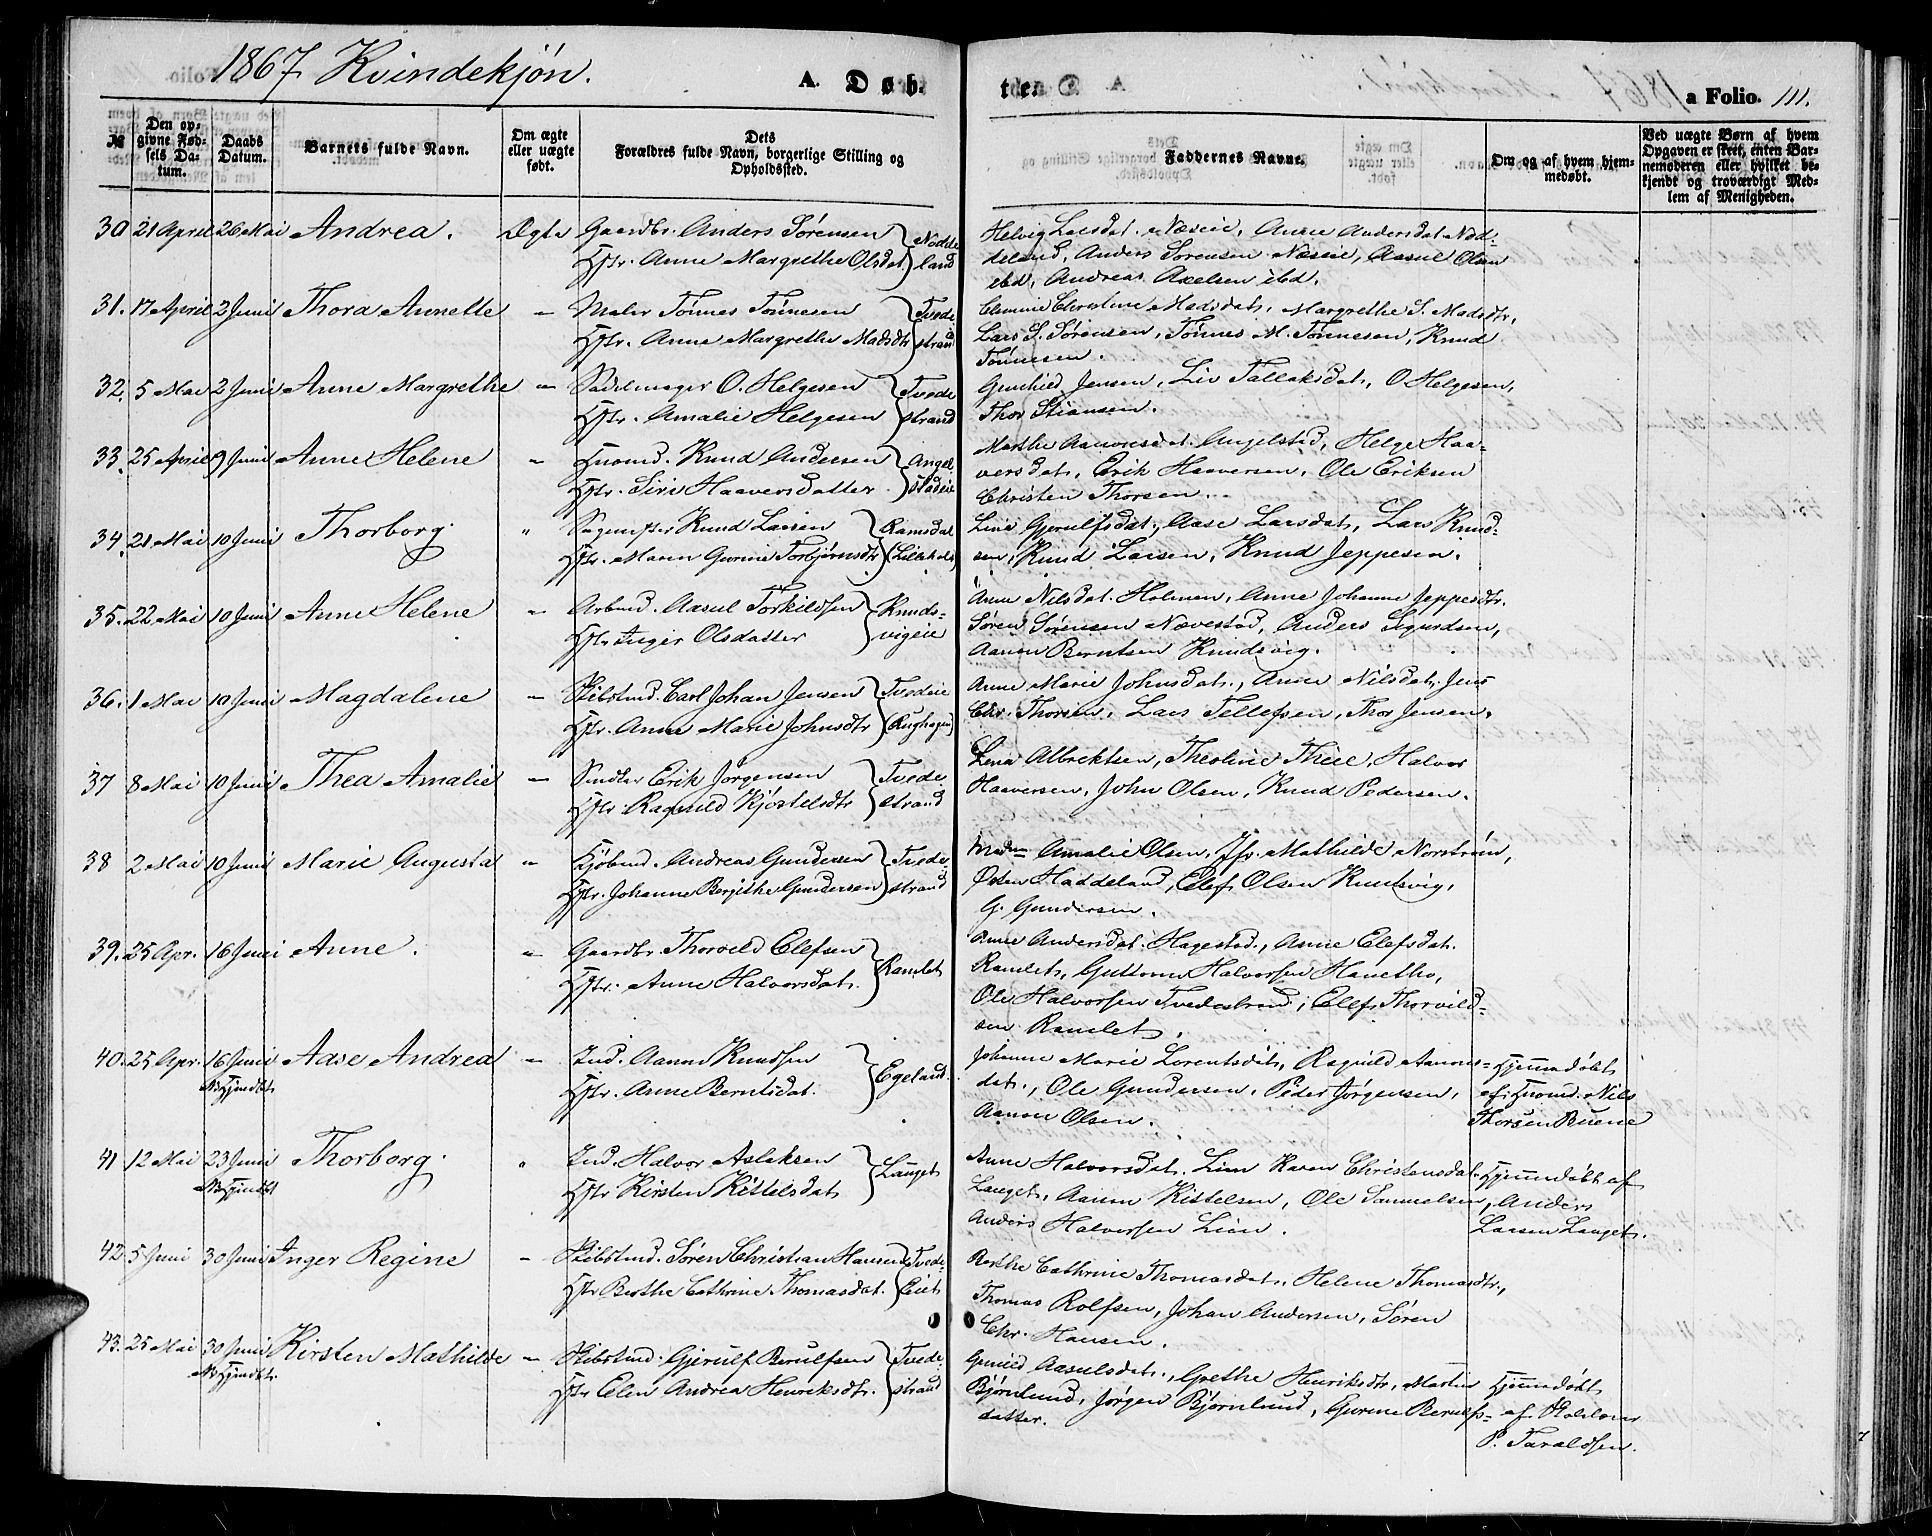 1867. Kvindekjön.
A. Døb-
te.
a Folio. 111.
№
Den op-
givne Fød-
sels Da-
tum.
Daabs
Datum.
Barnets fulde Navn.
Om ægte
eller uægte
født.
Dets
Forældres fulde Navn, borgerlige Stilling og
Opholdssted.
Faddernes Navne.
Om og af hvem hjem-
medøbt.
Ved uægte Børn af hvem
Opgaven er skeet, enten Bar-
nemoderen eller hvilket be-
kjendt og troværdigt Med-
lem af Menigheden.
30 21 April 26 Mai Andrea. Ægte Gaardbr. Anders Sørensen Nødde
Hstr. Anne Margrethe Olsdat. land
Helvig Larsdat. Næseie, Anne Andersdat. Nød-
deland, Anders Sørensen Næseie, Aasul Olsen
ibd, Andreas Axelsen ibd.
31. 17 April 2 Juni Thora Annette " Maler Tönnes Tönnesen Tvede
Hstr. Anne Margrethe Madsdtr strand
Christine Madsdat., Margrethe S. Madsdtr,
Lars S. Sørensen, Tønnes M. Tønnesen, Knud
Tønnesen.
32. 5 Mai 2 Juni Anne Margrethe " Sadelmager O. Helgesen Tvede
Hstr. Amalie Helgesen strand
Gunhild Jensen, Liv Tallaksdat., O Helgesen,
Thor Stiansen.
33. 25 April 9 Juni Anne Helene " Huusmd. Knud Andersen Angel
Hstr. Siri Haaversdatter stadeie
Marthe Aanonsdat. Angelstad, Helge Haa-
versdat., Erik Haaversen, Ole Eriksen
Christen Thorsen.
34. 21 Mai 10 Juni Thorborg. " Sagmester Knud Larsen Ramsdal
Hstr. Maren Gurine Torbjørnsdtr (Lilleholt)
Lina Gjerulfsdat., Aase Larsdat., Lars Knud-
sen, Knud Larsen, Knud Jeppesen.
35. 22 Mai 10 Juni Anne Helene " Arbmd. Aasul Torkildsen Knuds-
Hstr. Inger Olsdatter vigeie
Anne Nilsdat. Holmen, Anne Johanne Jeppesdtr.
Søren Sørensen Nævestad, Anders Sigurdsen,
Aanon Berntsen Knudsvig.
36. 1 Mai 10 Juni Magdalene " Skibstmd. Carl Johan Jensen Tvedeie
Hstr. Anne Marie Johnsdtr (Rughagen)
Anne Marie Johnsdat., Anne Nilsdat., Jens
Chr. Thorsen, Lars Tellefsen, Thor Jensen.
37 8 Mai 10 Juni Thea Amalie " Snedker Erik Jørgensen Tvede
Hstr. Ragnild Kjøstelsdtr strand
Lene Albrektsen, Theoline Thiie, Halvor
Haaversen, John Olsen, Knud Pedersen.
38 2 Mai 10 Juni Marie Augusta " Kjøbmd. Andreas Gundersen Tvede-
Hstr. Johanne Bergithe Gundersen strand
Madm Amalie Olsen, Jfr. Mathilde Norström,
Østen Haddeland, Elef Olsen Knudsvig,
G. Gundersen.
39. 25 Apr. 16 Juni Anne. " Gaardbr. Thorvild Elefsen
Hstr. Anne Halvorsdat. Ramlet
Anne Andersdat. Hagestad, Anne Elefsdat.
Ramlet, Guttorm Halvorsen Hanetho,
Ole Halvorsen Tvedestrand, Elef Thorvild-
sen Ramlet.
40. 25 Apr. 16 Juni Aase Andrea " Ind. Aanon Knudsen
No Hjemdbt. Hstr. Anne Berntsdat. Egeland.
Johanne Marie Lorentsdat, Ragnild Aanons-
dat., Ole Gundersen, Peder Jørgensen,
Aanon Olsen.
Hjemmedøbt
af Huusmd. Nils
Thorsen Buene
41 12 Mai 23 Juni Thorborg. " Ind. Halvor Aslaksen
No Hjemdbt Hstr Kirsten Kittelsdat Lauget
Anne Halvorsdat. Lien Karen Christensdat.
Lauget, Aanon Kittelsen, Ole Samuelsen,
Anders Halvorsen Lien.
Hjemmedøbt af
Anders
Larsen Lauget.
42. 5 Juni 30 Juni Inger Regine " Skibstmd. Søren Christian Hansen Tvede-
Hstr Berthe Cathrine Thomasdat. Eiet
Berthe Cathrine Thomasdat., Helene Thomasdtr,
Thomas Rolfsen, Johan Andersen, Søren
Chr. Hansen.
43. 25 Mai 30 Juni Kirsten Mathilde " Skibstmd. Gjerulf Berulfsen Tvede-
No Hjemdbt. Hstr Elen Andrea Henriksdtr. strand
Gunild Aasulsdat., Grethe Henriksdtr, Martin
Bjørnlund, Jørgen Bjørnlund, Gurine Berulfs-
datter.
Hjemmedøbt
af
P. Taraldsen.